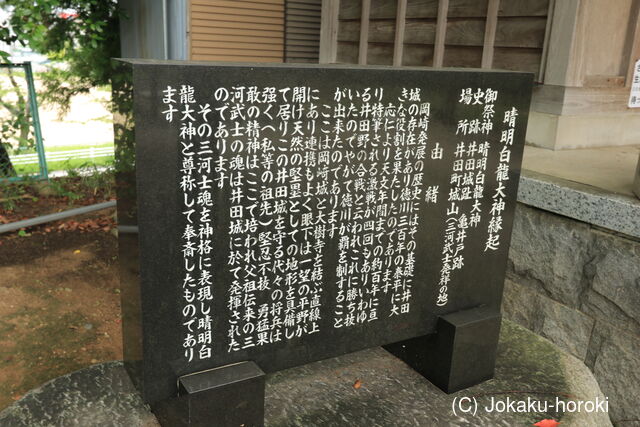 晴明白龍大神縁起
御祭神 晴明白龍大神
史跡 井田城趾 亀井戸跡
場所 井田町城山(三河武士発祥の地)
由緒
岡崎発展の歴史にはその基礎に井田
城の存在があり徳川三百年の泰平に大
きな役割を果たしたのであります
応仁より天文年間までの約百年に亘
り特筆される激戦が四回もありいわゆ
る井田野の合戦と云われこれに勝ち抜
いたのでやがて徳川が覇を制すること
が出来たのであります
ここは岡崎城と大樹寺を結ぶ直線上
にあり連携もよく眼下は一望の平野が
開け天然の堅塁としての地形を具備し
て居りこの井田城を守る代々の将兵は
強くへ私等の祖先〉堅忍不抜 勇猛果
敢の精神はここで培われ父祖伝来の三
河武士の魂は井田城に於て発揮された
のであります
その三河士魂を神格に表現し晴明白
龍大神と尊称して奉斎したものであり
ます
(C) Jokaku-horoki